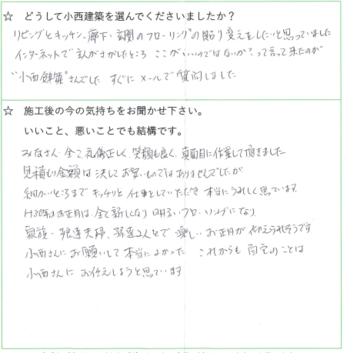 ☆ どうして小西建築を選んでくださいましたか？
リビングとキッチン、廊下、玄関のフローリングの貼り変えをしたいと思っていました
インターネットで主人がさがしたところ ここがいいのではないか？って言って来たのが
"小西建築"さんでした すぐにメールで質問しました
☆ 施工後の今の気持ちをお聞かせ下さい。
いいこと、悪いことでも結構です。
みなさん 全て礼儀正しく、笑顔も良く、真面目に作業して頂きました
見積り金額は決してお安いものではありませんでしたが
細かいところまでキッチリと仕事をしていただき 本当にうれしく思っています
H30年のお正月は、全て新しくなり 明るいフローリングになり
親族・ 夫婦、 さんとで 楽しいお正月がむかえられそうです
小西さんにお願いして本当によかった これからも 自宅のことは
小西さんに お伝えしようと思っています